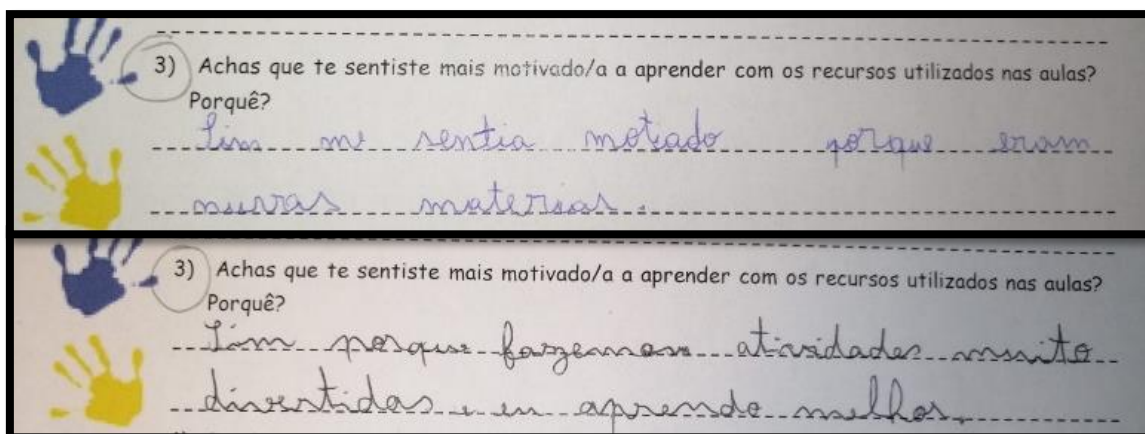 3) Achas que te sentiste mais motivado/a a aprender com os recursos utilizados nas aulas?
Porquê?
Sim me sentia motiado porque eram
nuvas materias.
3) Achas que te sentiste mais motivado/a a aprender com os recursos utilizados nas aulas?
Porquê?
Sim porque fazemos atividades muito
divertidas e eu aprendo melhor.